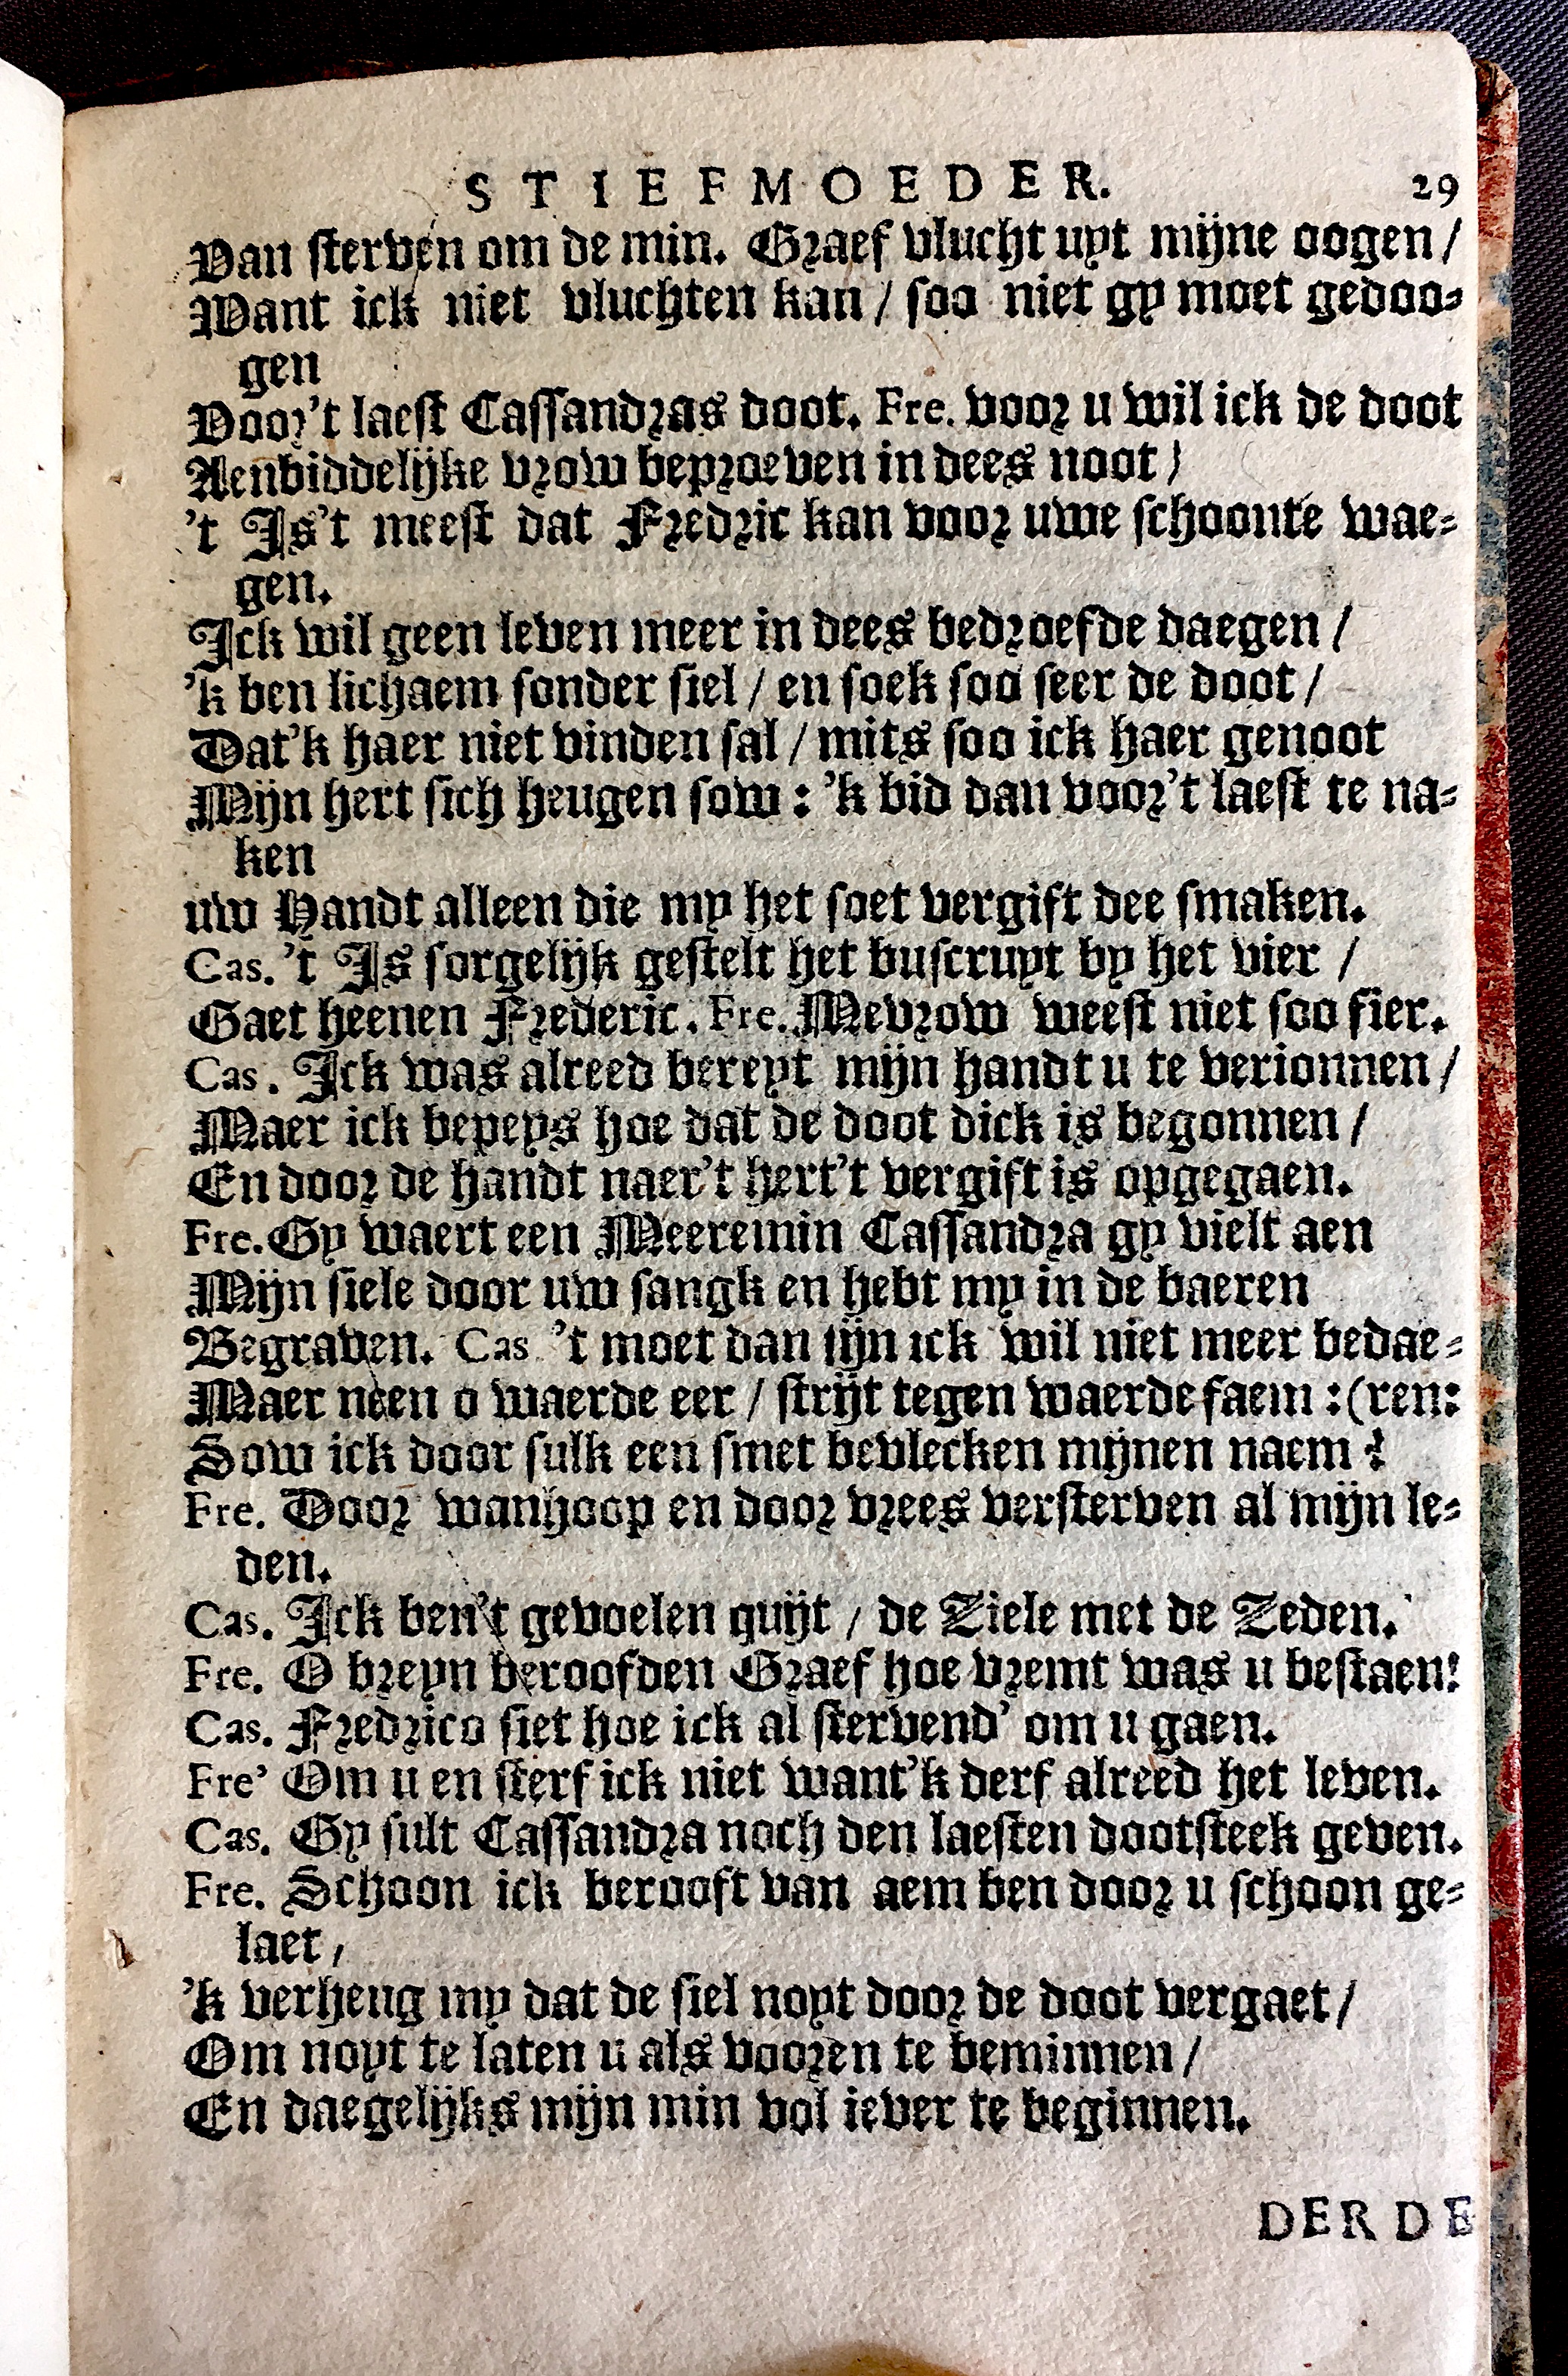 STIEFMOEDER. 29
Van sterven om de min. Graef vlucht uyt mijne oogen/
Want ick niet vluchten kan / soo niet gy moet gedoo-
gen
Voor't laest Cassandras doot. Fre. voor u wil ick de doot
Aenbiddelijke vrow beproeven in dees noot/
't Is't meest dat Fredric kan voor uwe schoonte wae-
gen.
Ick wil geen leven meer in dees bedroefde daegen /
'k ben lichaem sonder siel / en soek soo seer de doot /
Dat'k haer niet vinden sal / mits soo ick haer genoot
Mijn hert sich heugen sow : 'k bid dan voor't laest te na-
ken
uw Handt alleen die my het soet vergift dee smaken.
Cas. 't Is sorgelijk gestelt het buscruyt by het vier /
Gaet heenen Frederic. Fre. Mevrow weest niet soo fier.
Cas. Ick was alreed bereyt mijn handt u te verionnen /
Maer ick bepeys hoe dat de doot dick is begonnen /
En door de handt naer't hert't vergift is opgegaen.
Fre. Gy waert een Meeremin Cassandra gy vielt aen
Mijn siele door uw sangk en hebt my in de baeren
Begraven. Cas. 't moet dan sijn ick wil niet meer bedae-
Maer neen o waerde eer / strijt tegen waerde faem : (ren:
Sow ick door sulk een smet bevlecken mijnen naem ?
Fre. Door wanhoop en door vrees versterven al mijn le-
den.
Cas. Ick ben't gevoelen quijt / de Ziele met de Zeden.
Fre. O breyn beroofden Graef hoe vremt was u bestaen!
Cas. Fredrico siet hoe ick al stervend' om u gaen.
Fre' Om u en sterf ick niet want'k derf alreed het leven.
Cas. Gy sult Cassandra noch den laesten dootsteek geven.
Fre. Schoon ick berooft van aem ben door u schoon ge-
laet /
'k verheug my dat de siel noyt door de doot vergaet /
Om noyt te laten u als vooren te beminnen /
En daegelijks mijn min vol iever te beginnen.
DERDE